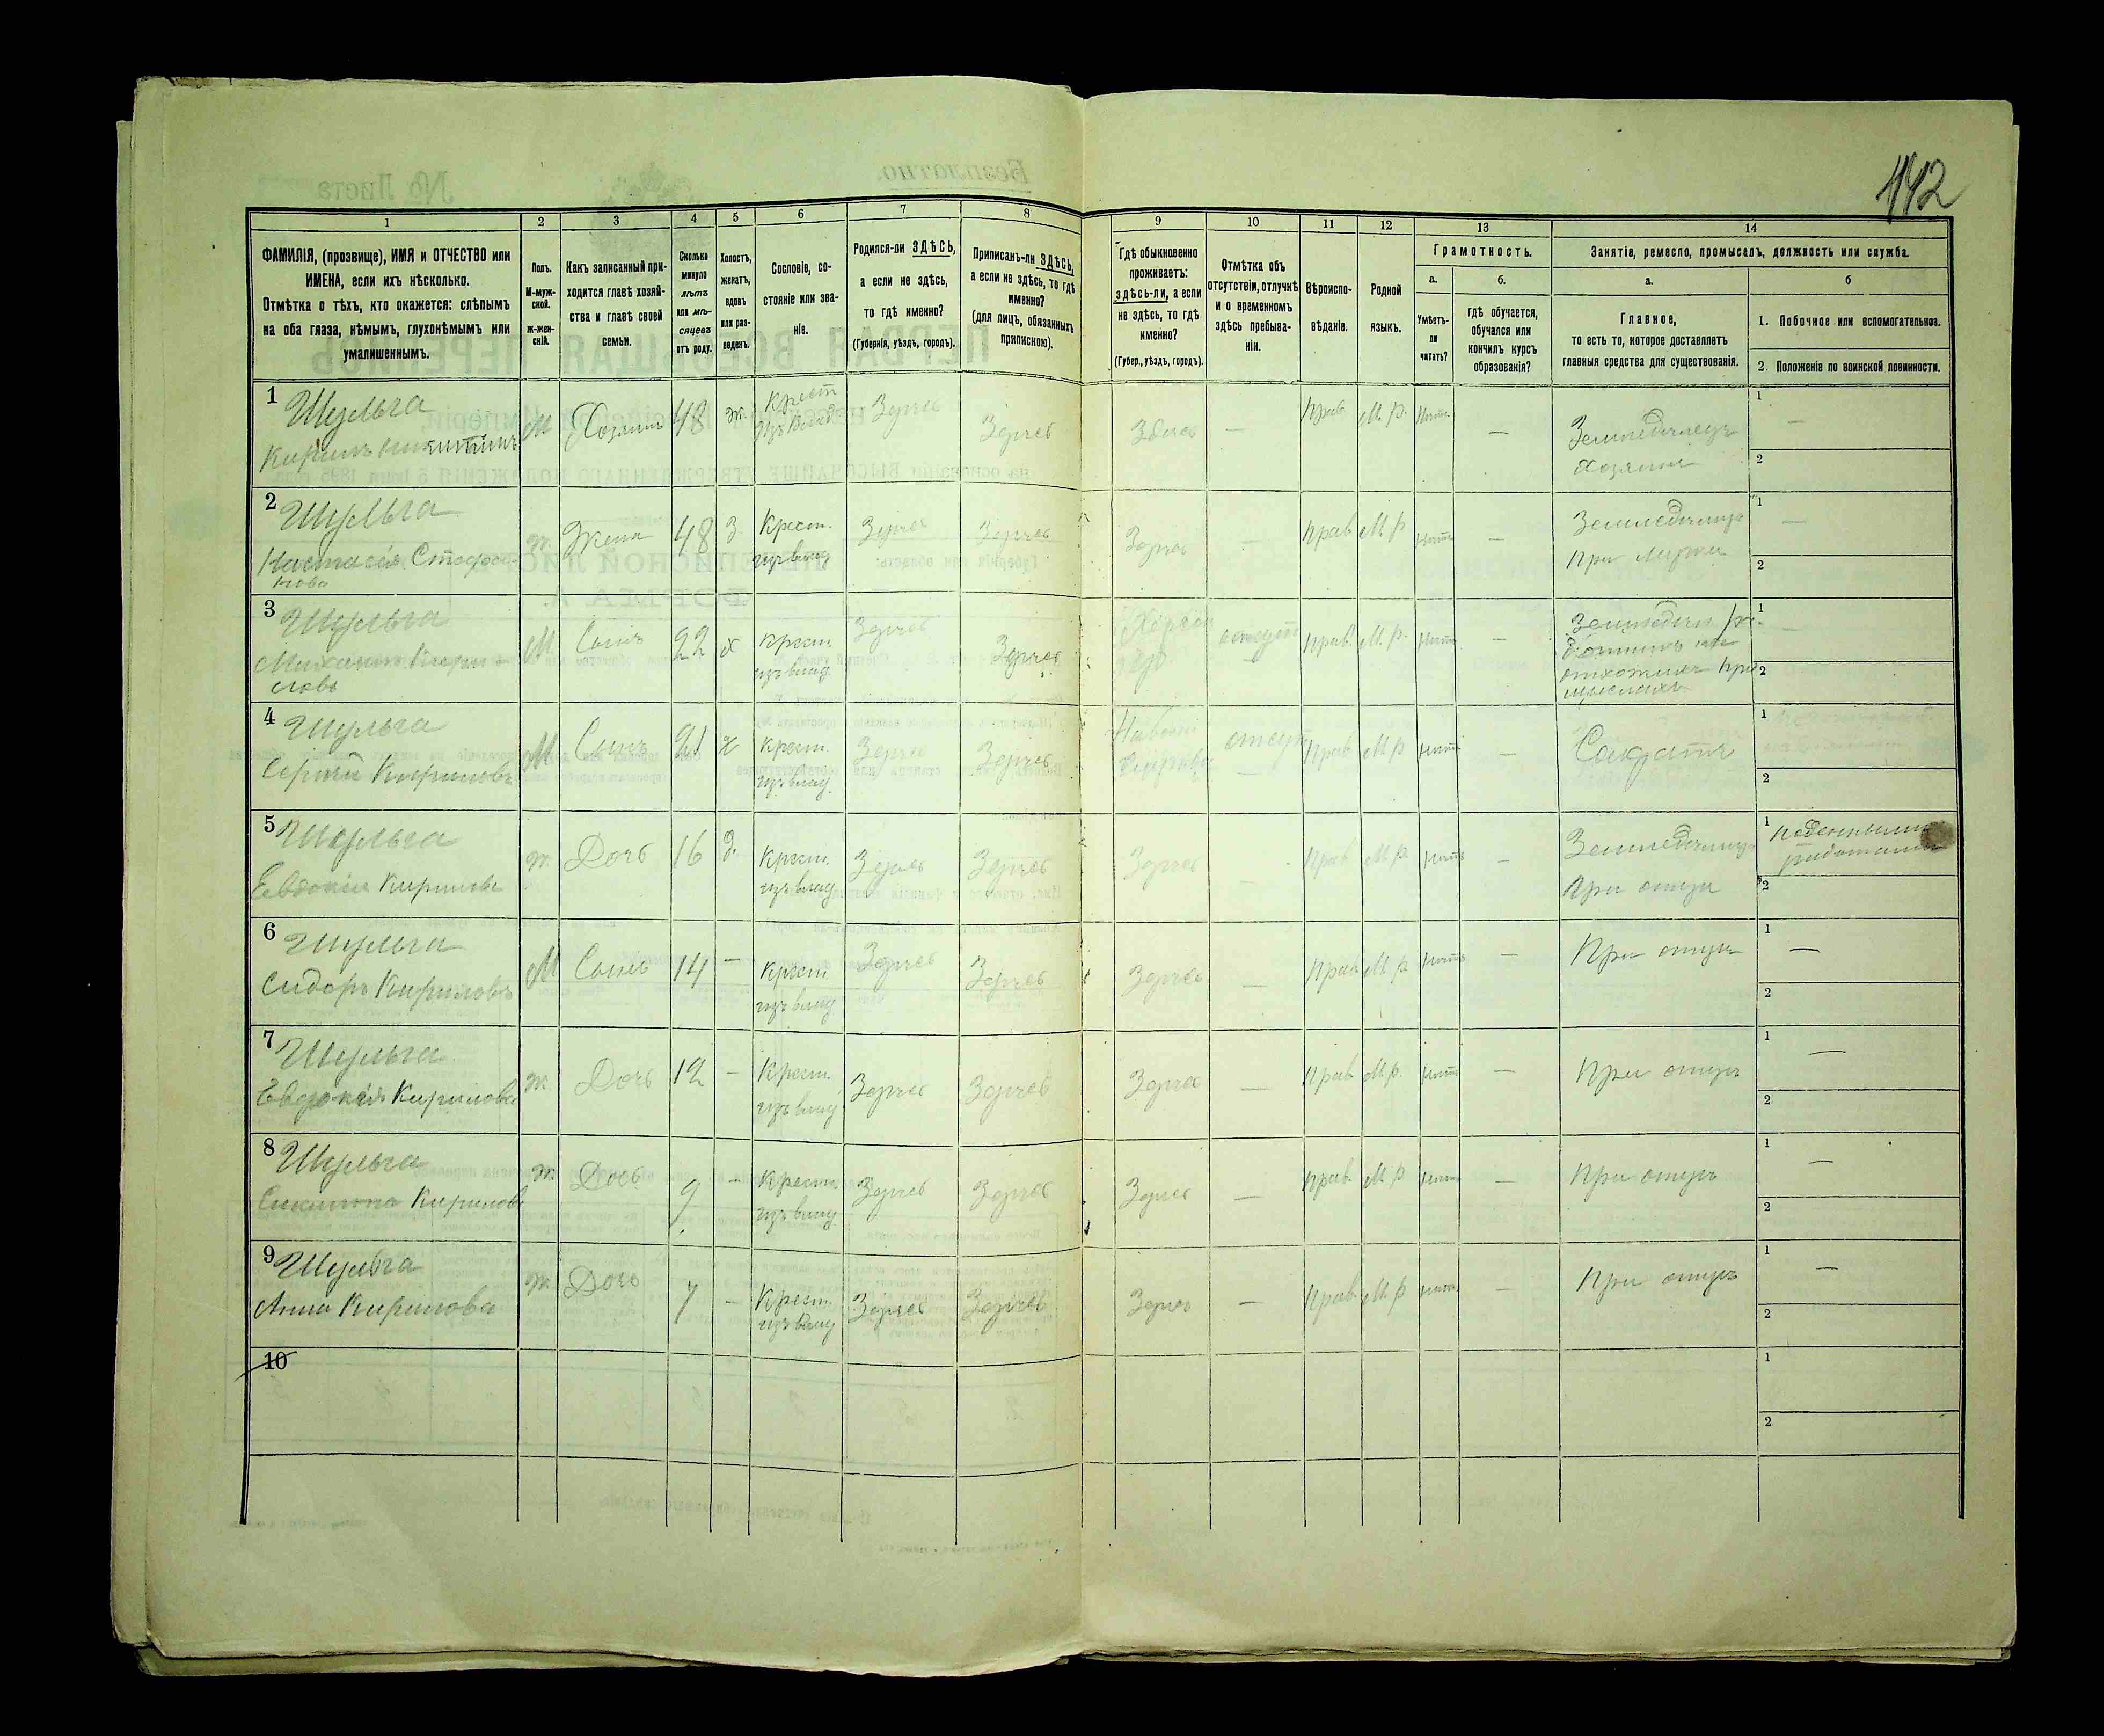 142
1
2
3
4
5
6
7
8
9
10
11
12
13
14
ФАМИЛІЯ, (прозвище), ИМЯ и ОТЧЕСТВО или
ИМЕНА, если ихъ нѣсколько.
Отмѣтка о тѣхъ, кто окажется: слѣпымъ
на оба глаза, нѣмымъ, глухонѣмымъ или
умалишеннымъ.
Полъ.
М-муж-
ской.
Ж-жен-
скій.
Какъ записанный при-
ходится главѣ хозяй-
ства и главѣ своей
семьи.
Сколько
минуло
лѣтъ
или мѣ-
сяцевъ
отъ роду.
Холостъ,
женатъ,
вдовъ
или раз-
веденъ.
Сословіе, со-
стояніе или зва-
ніе.
Родился-ли ЗДѢСЬ,
а если не здѣсь,
то гдѣ именно?
(Губернія, уѣздъ, городъ).
Приписанъ-ли ЗДѢСЬ,
а если не здѣсь, то гдѣ
именно?
(для лицъ, обязанныхъ
припискою).
Гдѣ обыкновенно
проживаетъ:
здѣсь-ли, а если
не здѣсь, то гдѣ
именно?
(Губер., уѣздъ, городъ).
Отмѣтка объ
отсутствіи, отлучкѣ
и о временномъ
здѣсь пребыва-
ніи.
Вѣроиспо-
вѣданіе.
Родной
языкъ.
Грамотность.
а.
Умѣетъ-
ли
читать?
б.
гдѣ обучается,
обучался или
кончилъ курсъ
образованія?
Занятіе, ремесло, промыселъ, должность или служба.
а.
Главное,
то есть то, которое доставляетъ
главныя средства для существованія.
б
1. Побочное или вспомогательное.
2. Положеніе по воинской повинности.
1 Шульга М Хозяинъ 48 ж. Крест Здѣсь Здѣсь Здѣсь — Прав. М.р. Нѣтъ — Земледѣлецъ 1 —
Хозяинъ 2
2 Шульга ж. Жена 48 З. Крест. Здѣсь Здѣсь Здѣсь — Прав М.р Нѣтъ Земледѣлица 1 —
Настасія Стефа- изъ влад при мужи 2
нова
3 Шульга М Сынъ 22 х Крест. Здѣсь Здѣсь отсут Прав. М.р. Нѣтъ — 1 —
Кири- изъ влад. 2
лова
4 Шульга М Сынъ 21 х Крест. Здѣсь Здѣсь отсут Прав М.р Нѣтъ — Солдатъ 1
Сергѣй Кириловъ изъ влад. 2
5 Шульга ж. Дочь 16 д. Крест. Здѣсь Здѣсь Здѣсь — Прав М.р Нѣтъ — Земледѣлица 1 поденными
Евдокія Кирилова изъ влад при отцѣ 2 работами
6 Шульга М Сынъ 14 — Крест Здѣсь Здѣсь Здѣсь — Прав М.р Нѣтъ — При отцѣ 1 —
Сидоръ Кириловъ изъ влад 2
7 Шульга ж. Дочь 12 — Крест. Здѣсь Здѣсь Здѣсь — Прав М.р. Нѣтъ — При отцѣ 1 —
Евдокія Кирилова изъ влад 2
8 Шульга ж. Дочь 9 — Крест. Здѣсь Здѣсь Здѣсь — Прав. М.р Нѣтъ — При отцѣ 1 —
Кирилова изъ влад 2
9 Шульга ж. Дочь 7 — Крест. Здѣсь Здѣсь Здѣсь — Прав. М.р Нѣтъ — При отцѣ 1 —
Анна Кирилова изъ влад 2
10 1
2